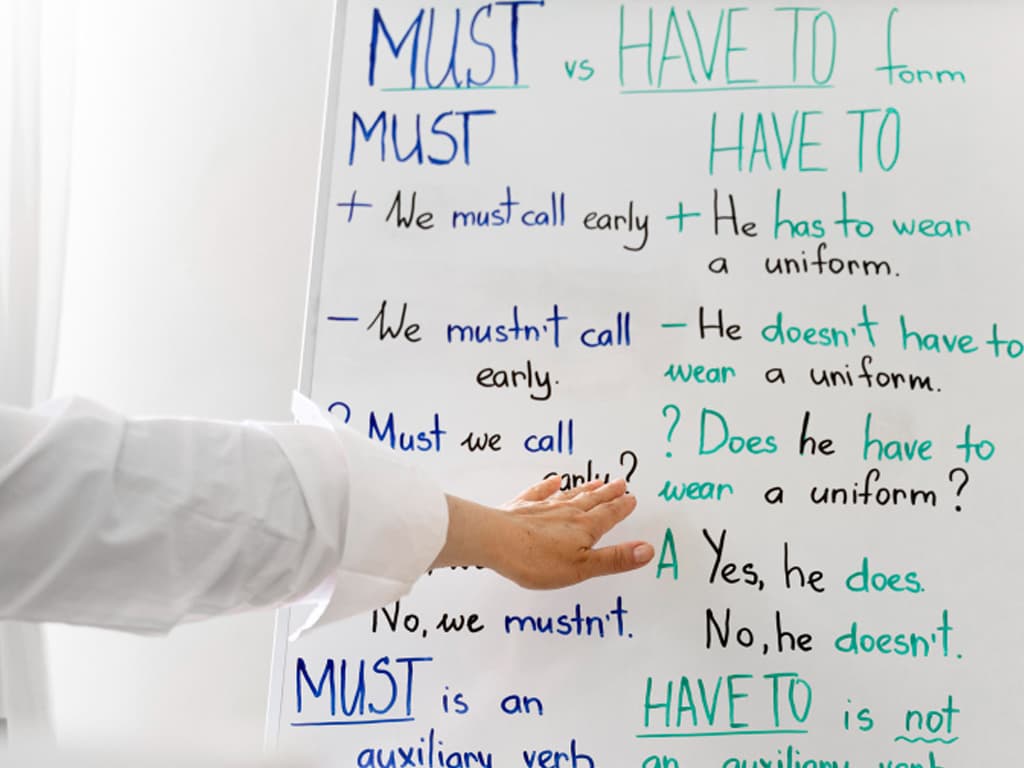 MUST vs HAVE TO form
MUST
+ We must call early
- We mustn't call
early.
? Must we call
early?
No, we mustn't.
MUST is an
auxiliary verb
HAVE TO
+ He has to wear
a uniform.
- He doesn't have to
wear a uniform.
? Does he have to
wear a uniform?
A Yes, he does.
No, he doesn't.
HAVE TO is not
an auxiliary verb